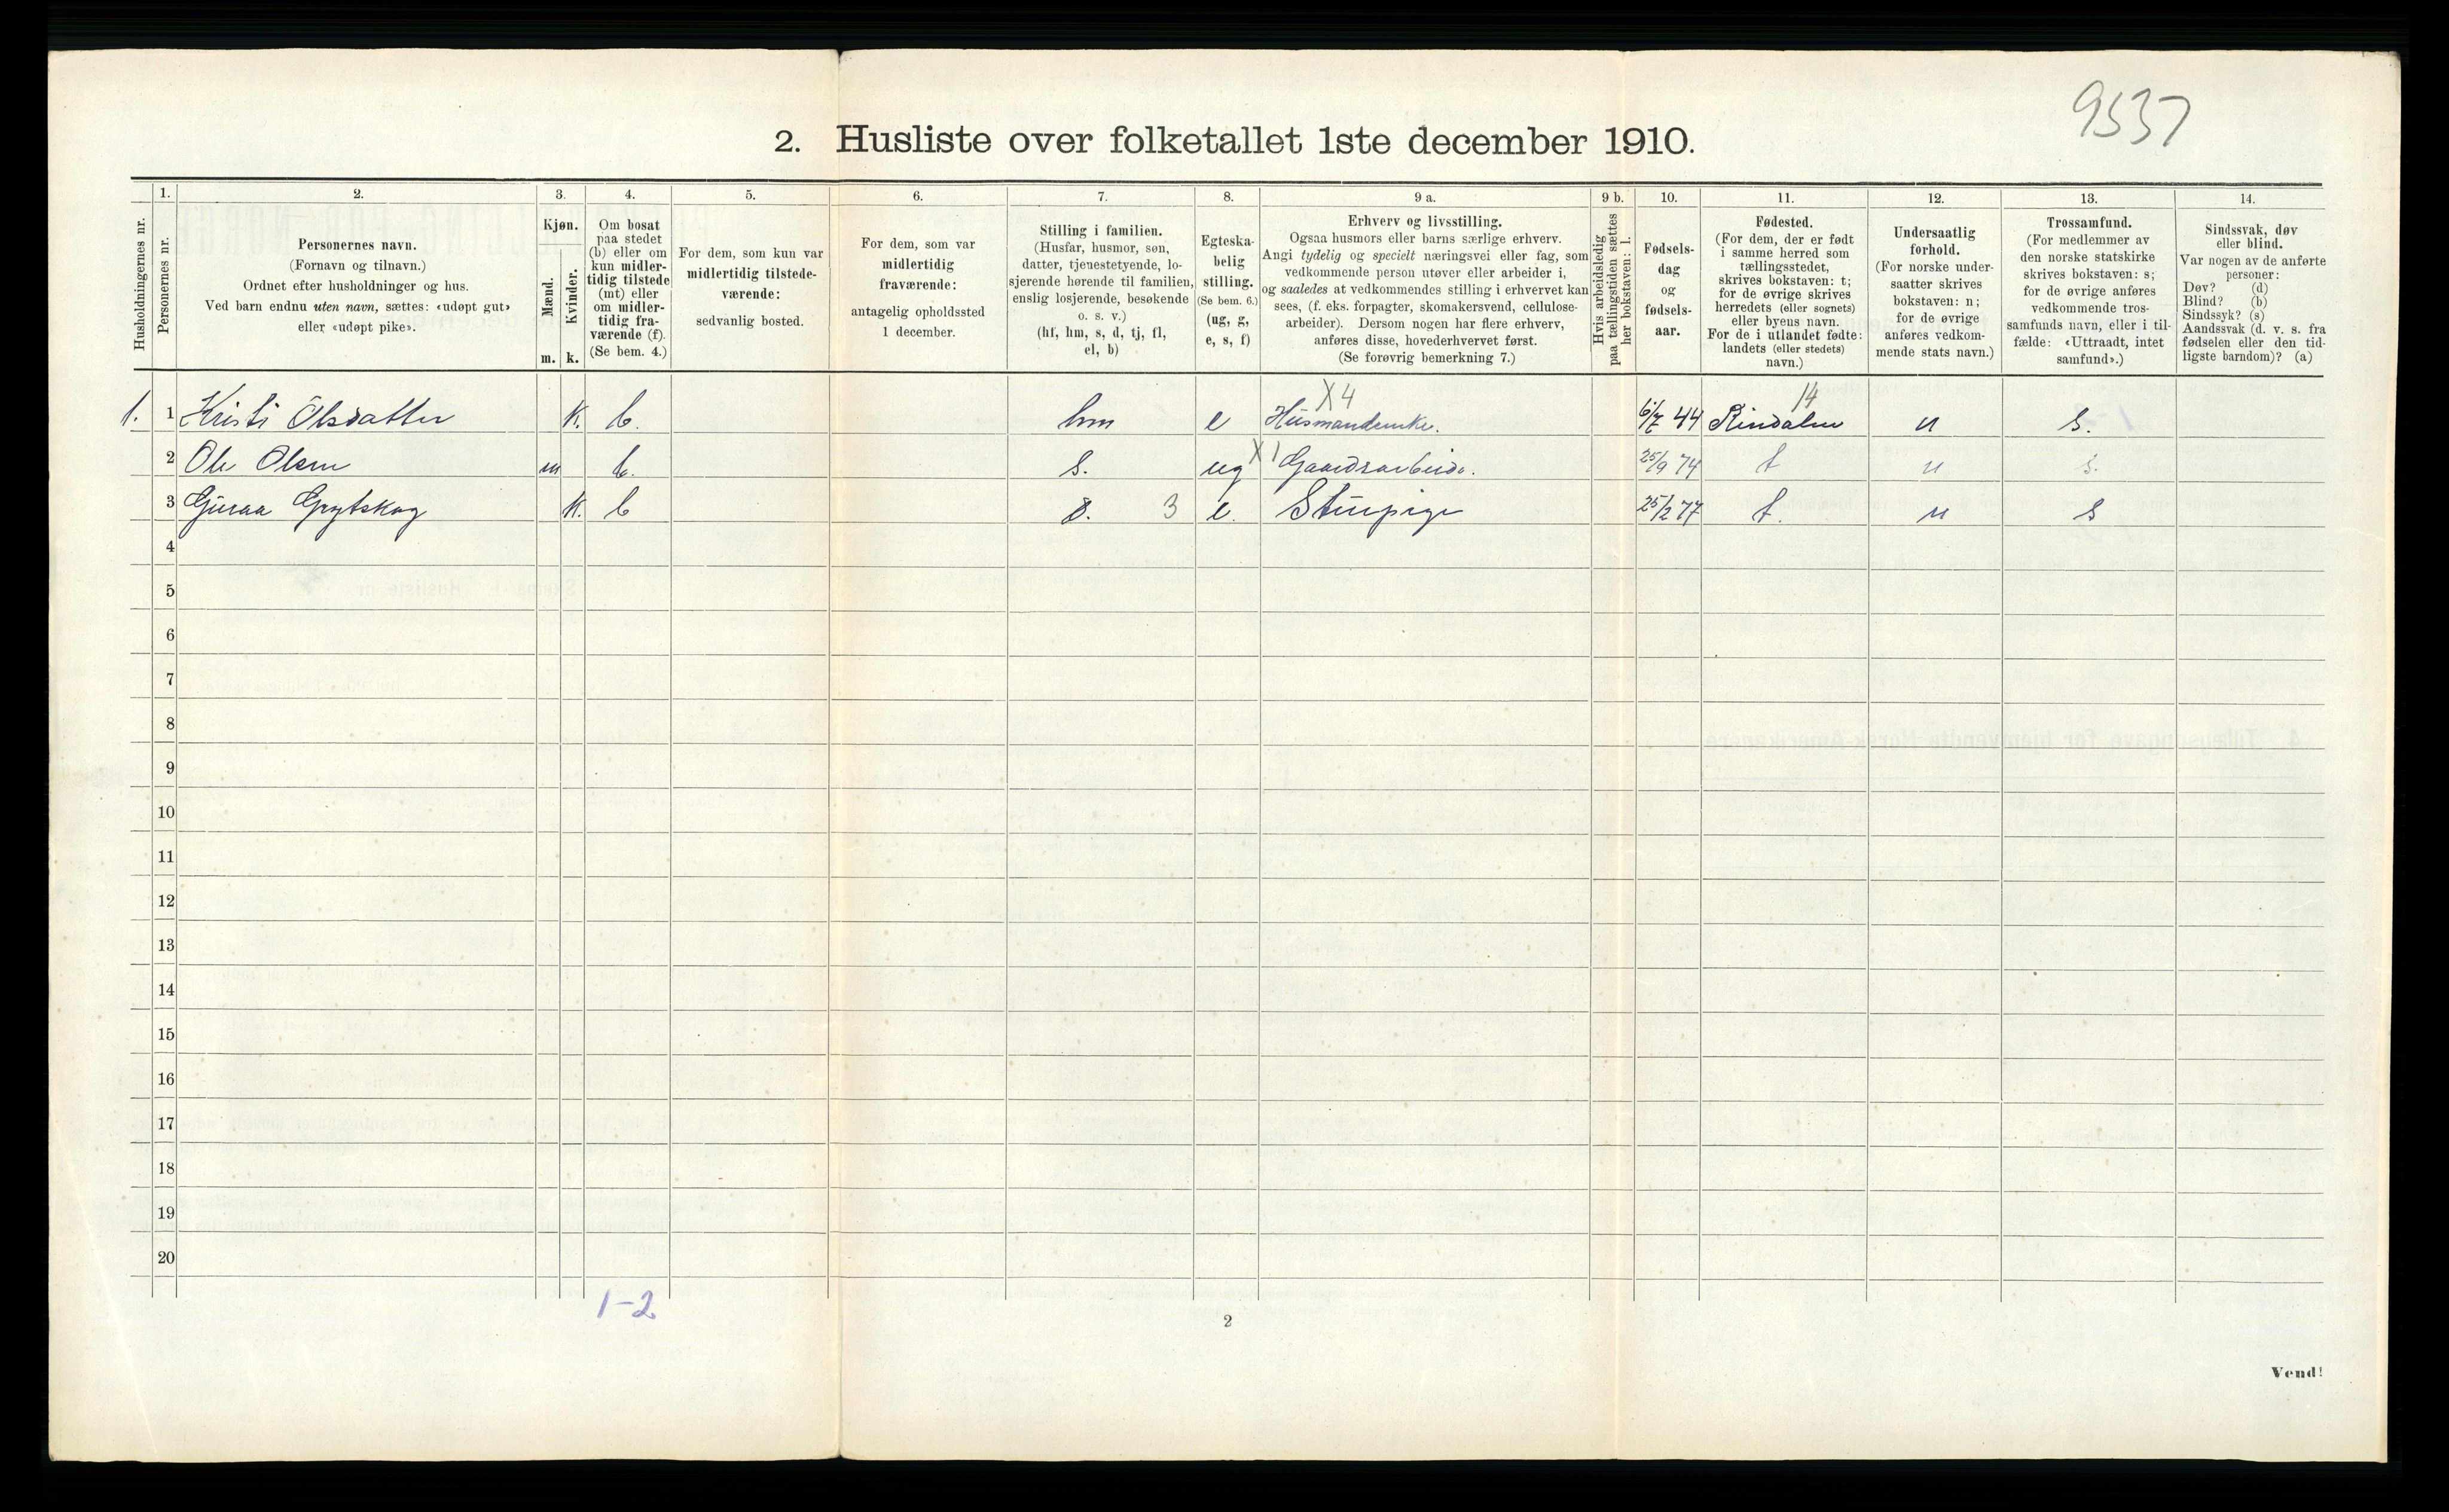 9537
2. Husliste over folketallet 1ste december 1910.
1. 2. 3. 4. 5. 6. 7. 8. 9 a. 9 b. 10. 11. 12. 13. 14.
Husholdningernes nr.
Personernes nr.
Personernes navn.
(Fornavn og tilnavn.)
Ordnet efter husholdninger og hus.
Ved barn endnu uten navn, sættes: «udøpt gut»
eller «udøpt pike».
Kjøn.
Mænd.
Kvinder.
m. k.
Om bosat
paa stedet
(b) eller om
kun midler-
tidig tilstede
(mt) eller
om midler-
tidig fra-
værende (f).
(Se bem. 4.)
For dem, som kun var
midlertidig tilstede-
værende:
sedvanlig bosted.
For dem, som var
midlertidig
fraværende:
antagelig opholdssted
1 december.
Stilling i familien.
(Husfar, husmor, søn,
datter, tjenestetyende, lo-
sjerende hørende til familien,
enslig losjerende, besøkende
o. s. v.)
(hf, hm, s, d, tj, fl,
el, b)
Egteska-
belig
stilling.
(Se bem. 6.)
(ug, g,
e, s, f)
Erhverv og livsstilling.
Ogsaa husmors eller barns særlige erhverv.
Angi tydelig og specielt næringsvei eller fag, som
vedkommende person utøver eller arbeider i,
og saaledes at vedkommendes stilling i erhvervet kan
sees, (f. eks. forpagter, skomakersvend, cellulose-
arbeider). Dersom nogen har flere erhverv,
anføres disse, hovederhvervet først.
(Se forøvrig bemerkning 7.)
Hvis arbeidsledig
paa tællingstiden sættes
her bokstaven: l.
Fødsels-
dag
og
fødsels-
aar.
Fødested.
(For dem, der er født
i samme herred som
tællingsstedet,
skrives bokstaven: t;
for de øvrige skrives
herredets (eller sognets)
eller byens navn.
For de i utlandet fødte:
landets (eller stedets)
navn.)
Undersaatlig
forhold.
(For norske under-
saatter skrives
bokstaven: n;
for de øvrige
anføres vedkom-
mende stats navn.)
Trossamfund.
(For medlemmer av
den norske statskirke
skrives bokstaven: s;
for de øvrige anføres
vedkommende tros-
samfunds navn, eller i til-
fælde: «Uttraadt, intet
samfund».)
Sindssvak, døv
eller blind.
Var nogen av de anførte
personer:
Døv? (d)
Blind? (b)
Sindssyk? (s)
Aandssvak (d. v. s. fra
fødselen eller den tid-
ligste barndom)? (a)
X4 14
1. 1 Kristi Olsdatter K. b. hm e Husmandsenke. 6/7 44 Rindalen n s.
2 Ole Olsen m b. s. ug X1 Gaardsarbeide. 25/9 74 t n s.
3 Guraa Grytskog K. b d. 3 e. Stuepige 25/2 77 t. n s
4
5
6
7
8
9
10
11
12
13
14
15
16
17
18
19
20
1-2
2
Vend!